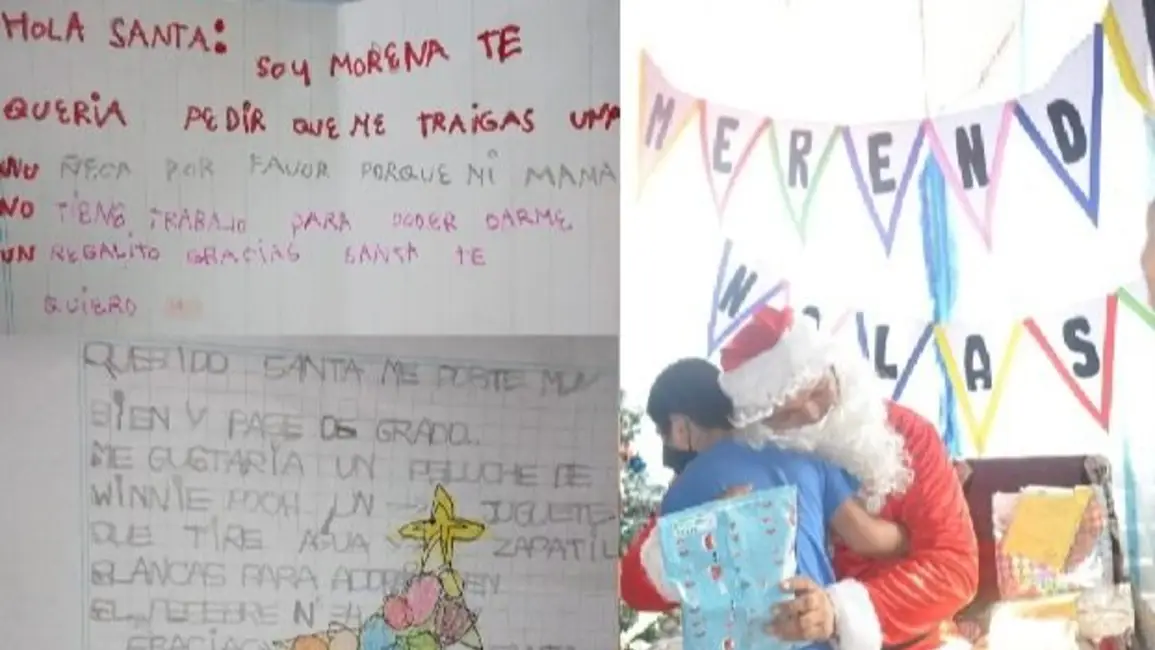 HOLA SANTA:
SOY MORENA TE
QUERIA PEDIR QUE ME TRAIGAS UNA
MU ÑECA POR FAVOR PORQUE MI MAMA
NO TIENE TRABAJO PARA PODER DARME
UN REGALITO GRACIAS SANTA TE
QUIERO
QUERIDO SANTA ME PORTE MUY
BIEN Y PASE DE GRADO.
ME GUSTARIA UN PELUCHE DE
WINNIE POOH UN JUGUETE
QUE TIRE AGUA ZAPATIL
BLANCAS PARA
EL
GRACIAS
MEREND
LAS